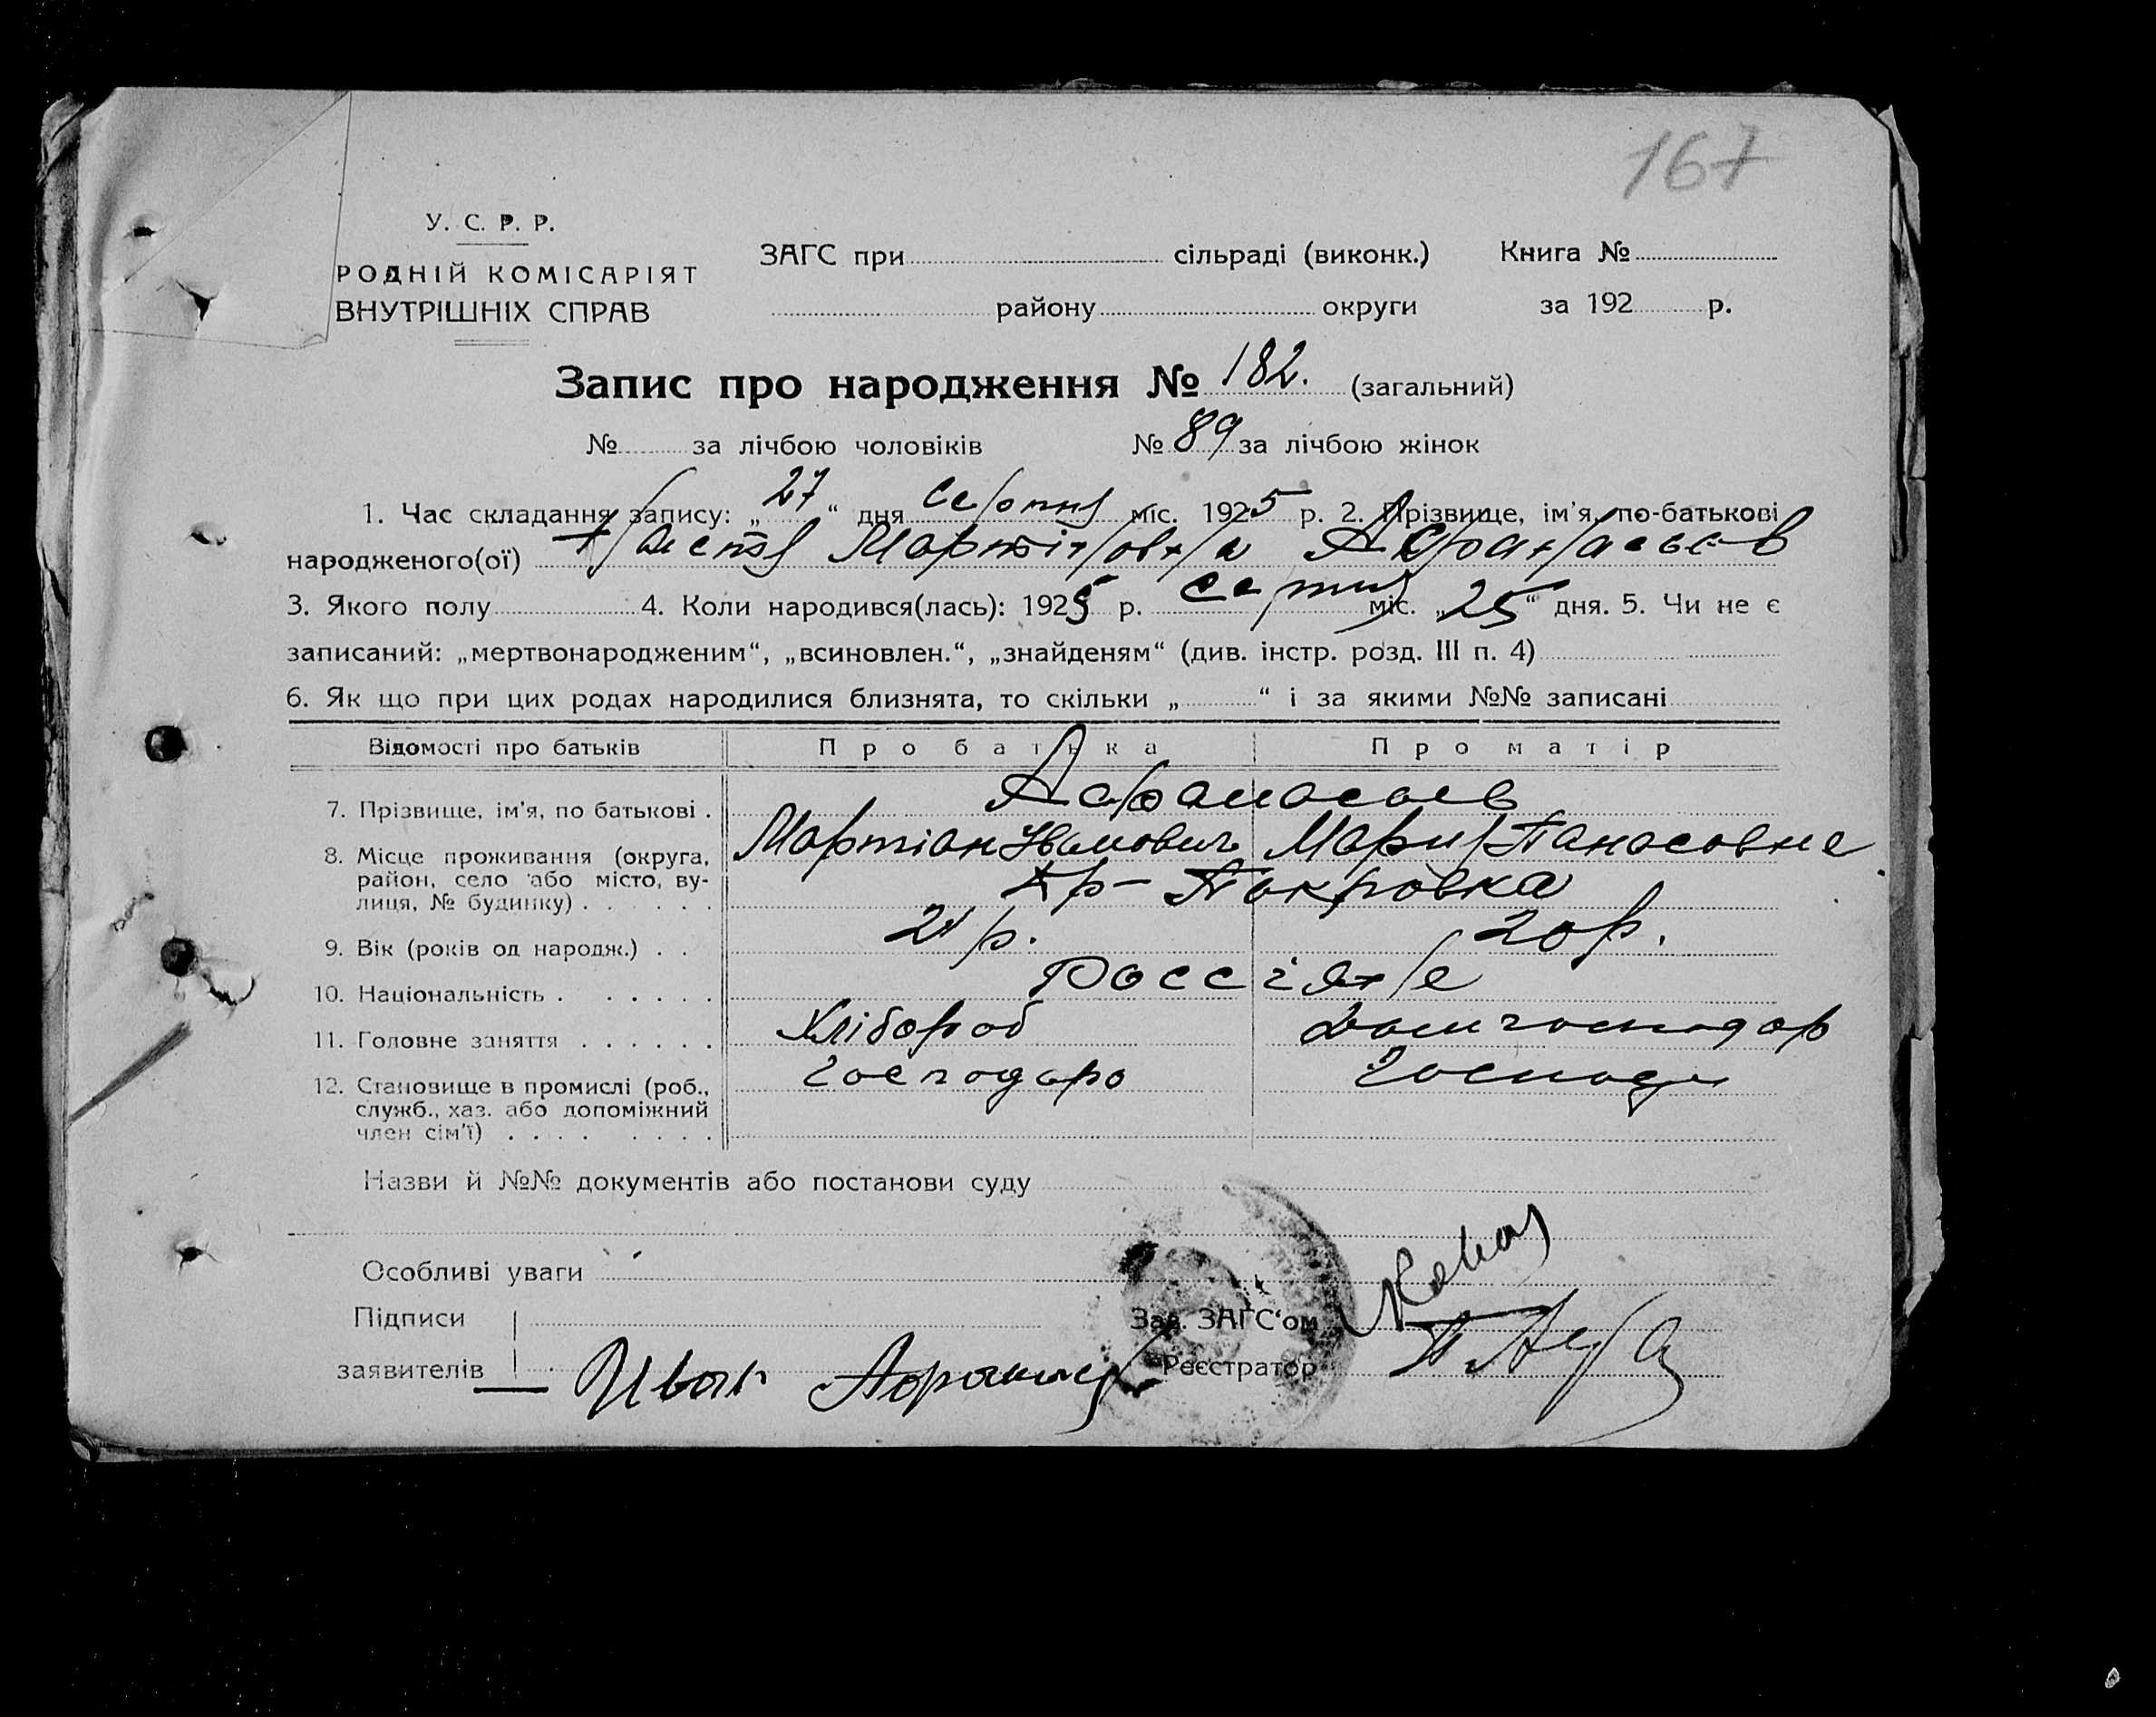 167
У. С. Р. Р.
РОДНІЙ КОМІСАРІЯТ
ВНУТРІШНІХ СПРАВ
ЗАГС при сільраді (виконк.) Книга №
району округи за 192 р.
Запис про народження № 182. (загальний)
№ за лічбою чоловіків № 89 за лічбою жінок
1. Час складання запису: „27“ дня серпня міс. 1925 р. 2. Прізвище, ім'я, по-батькові
народженого(ої) Настя Мартіновна Афанасьев
3. Якого полу 4. Коли народився(лась): 1925 р. серпня міс. „25“ дня. 5. Чи не є
записаний: „мертвонародженим“, „всиновлен.“, „знайденям“ (див. інстр. розд. III п. 4)
6. Як що при цих родах народилися близнята, то скільки „ “ і за якими №№ записані
Відомості про батьків Про батька Про матір
7. Прізвище, ім'я, по батькові . Афанасьев
Мартіан Иванович Мария Панасовна
8. Місце проживання (округа,
район, село або місто, ву-
лиця, № будинку) . . . . . . Кр-Покровка
9. Вік (років од народж.) . . 21 р. 20 р.
10. Національність . . . . . . Россіяне
11. Головне заняття . . . . . . Хлібороб Домгосподар
12. Становище в промислі (роб.,
служб., хаз. або допоміжний
член сім'ї) . . . . . . . . Господарь Господ
Назви й №№ документів або постанови суду
Особливі уваги
Підписи
заявителів Иван Афанасьев
Зав. ЗАГС'ом
Реєстратор